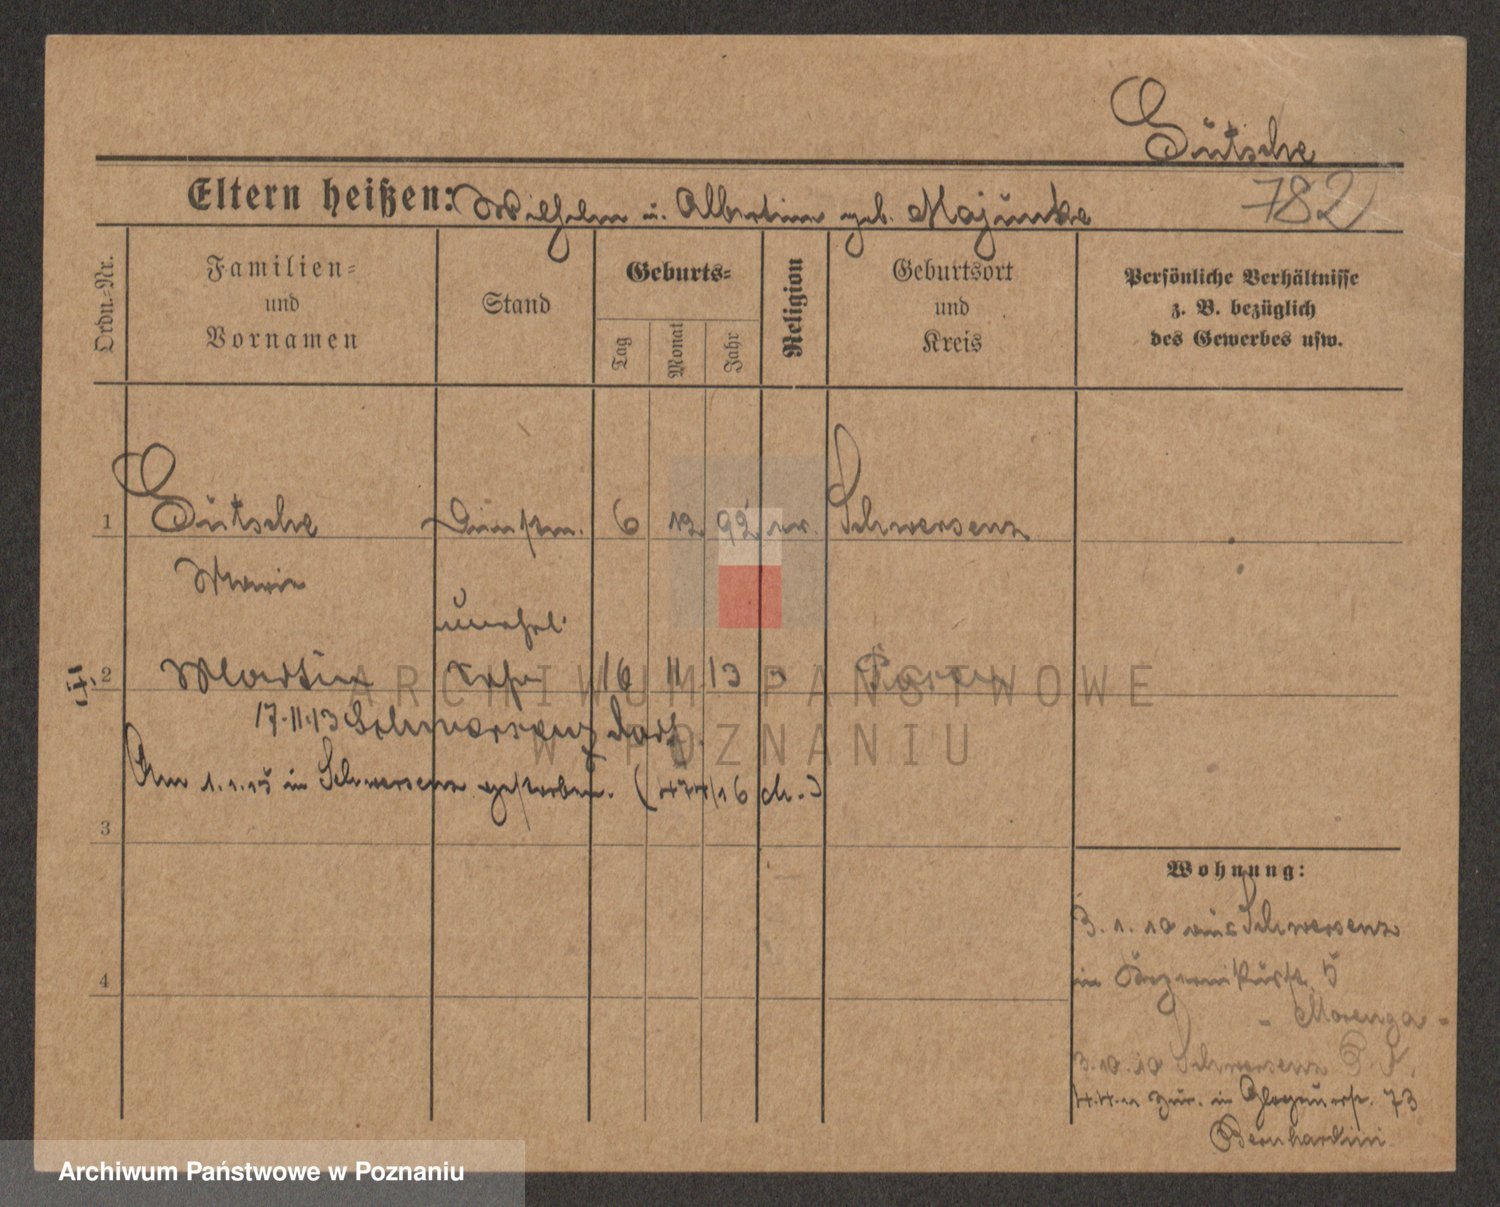 Gütsche
Eltern heißen: Wilhelm u. Albertine geb. Majunke
782
Ordn.-Nr.
Familien-
und
Vornamen
Stand
Geburts-
Tag
Monat
Jahr
Religion
Geburtsort
und
Kreis
Persönliche Verhältnisse
z. B. bezüglich
des Gewerbes usw.
1 Gütsche Dienstm. 6 12 92 ev. Schwersenz
Marie
unehel.
2 Martin Sohn 16 11 13 Posen
17.11.13 Schwersenz
Am 1.1.15 in Schwersenz gestorben.
3
4
Wohnung:
3.1.10 aus Schwersenz
in 5
- Morenga -
3.10.10 Schwersenz
zur. in Glogauerstr. 73
Bernhardini
ARCHIWUM PAŃSTWOWE
W POZNANIU
Archiwum Państwowe w Poznaniu